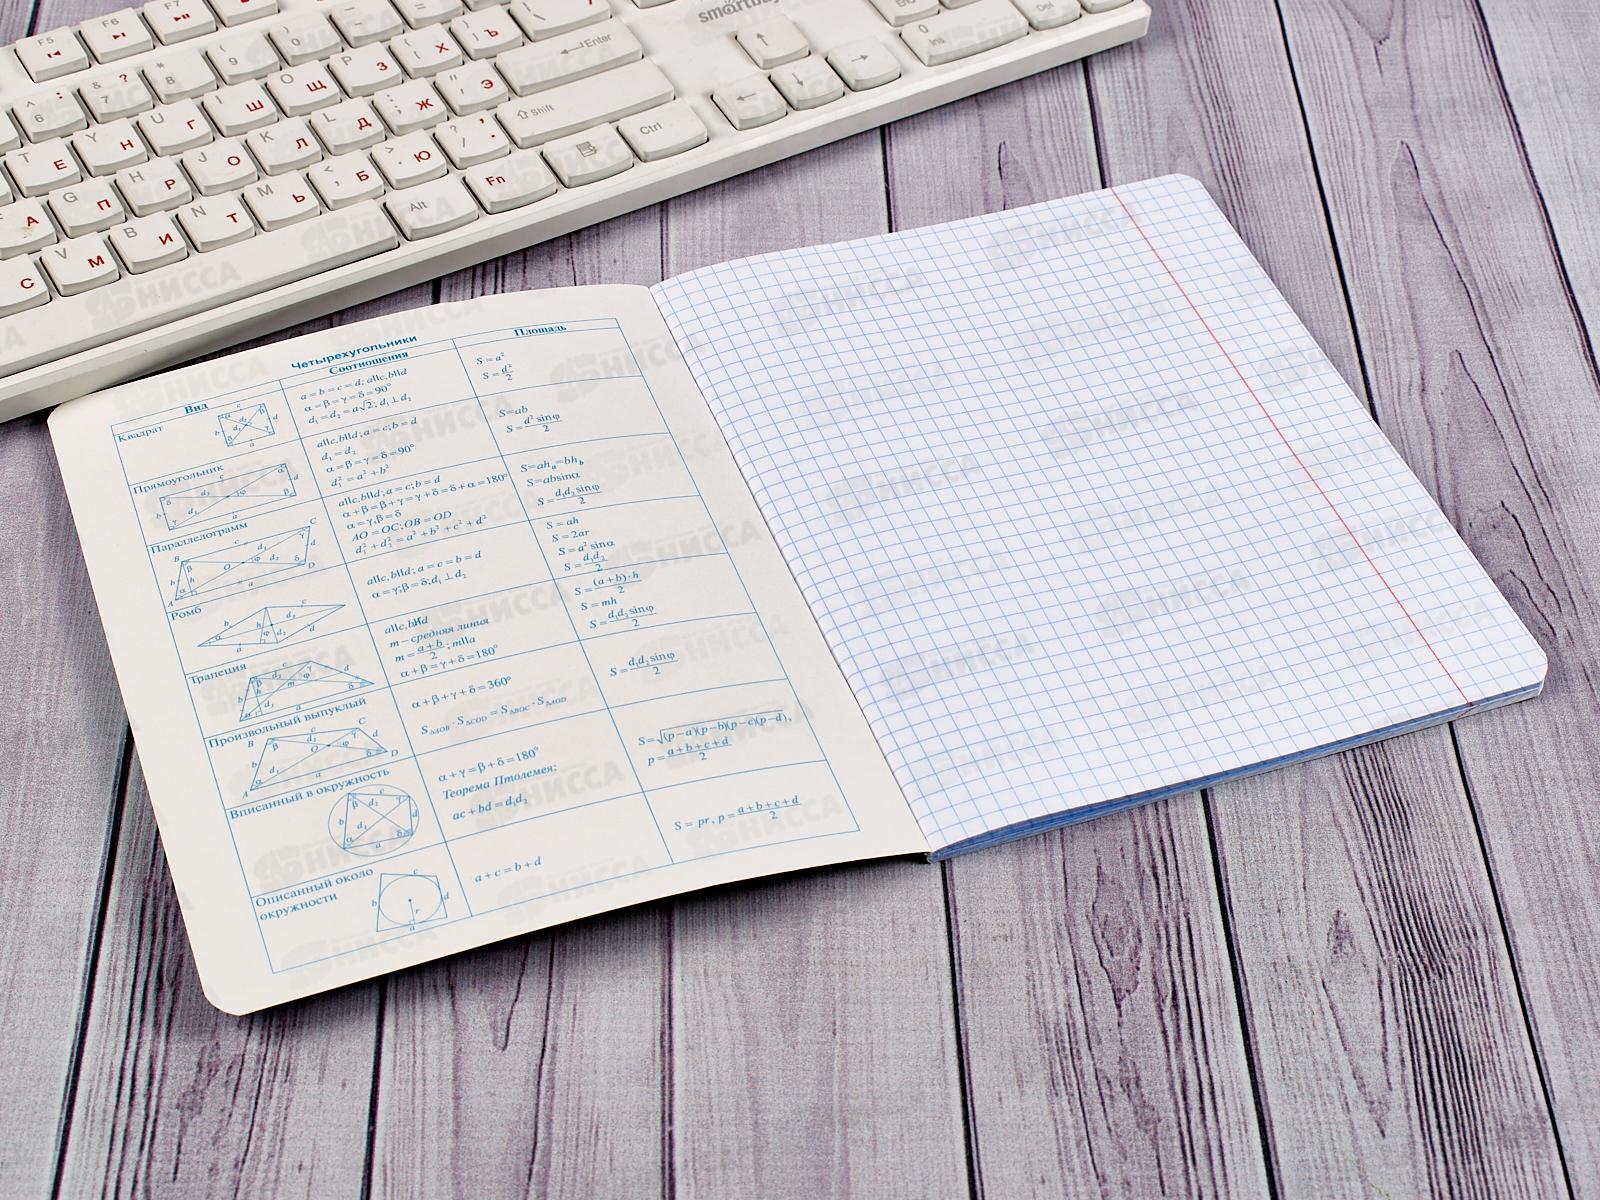 Четырехугольники
Вид Соотношения Площадь
Квадрат
a = b = c = d; a∥c, b∥d
α = β = γ = δ = 90°
d₁ = d₂ = a√2; d₁ ⊥ d₂
S = a²
S = d²/2
Прямоугольник
a∥c, b∥d; a = c; b = d
d₁ = d₂
α = β = γ = δ = 90°
d₁² = a² + b²
S = ab
S = d² sinφ/2
Параллелограмм
a∥c, b∥d; a = c; b = d
α + β = β + γ = γ + δ = δ + α = 180°
α = γ, β = δ
AO = OC; OB = OD
d₁² + d₂² = a² + b² + c² + d²
S = ahₐ = bh_b
S = absinα
S = d₁d₂ sinφ/2
Ромб
a∥c, b∥d; a = c = b = d
α = γ, β = δ; d₁ ⊥ d₂
S = ah
S = 2ar
S = a² sinα
S = d₁d₂/2
Трапеция
a∥c, b∦d
m – средняя линия
m = a + b/2; m∥a
α + β = γ + δ = 180°
S = (a + b)·h/2
S = mh
S = d₁d₂ sinφ/2
Произвольный выпуклый
α + β + γ + δ = 360°
S△AOB · S△COD = S△BOC · S△AOD
S = d₁d₂ sinφ/2
Вписанный в окружность
α + γ = β + δ = 180°
Теорема Птолемея:
ac + bd = d₁d₂
S = √(p – a)(p – b)(p – c)(p – d),
p = a + b + c + d/2
Описанный около
окружности
a + c = b + d
S = pr, p = a + b + c + d/2
smartbuy
F5 F6 F7
Enter
Shift
Ctrl
Fn
Alt
Ins
Del
НИССА